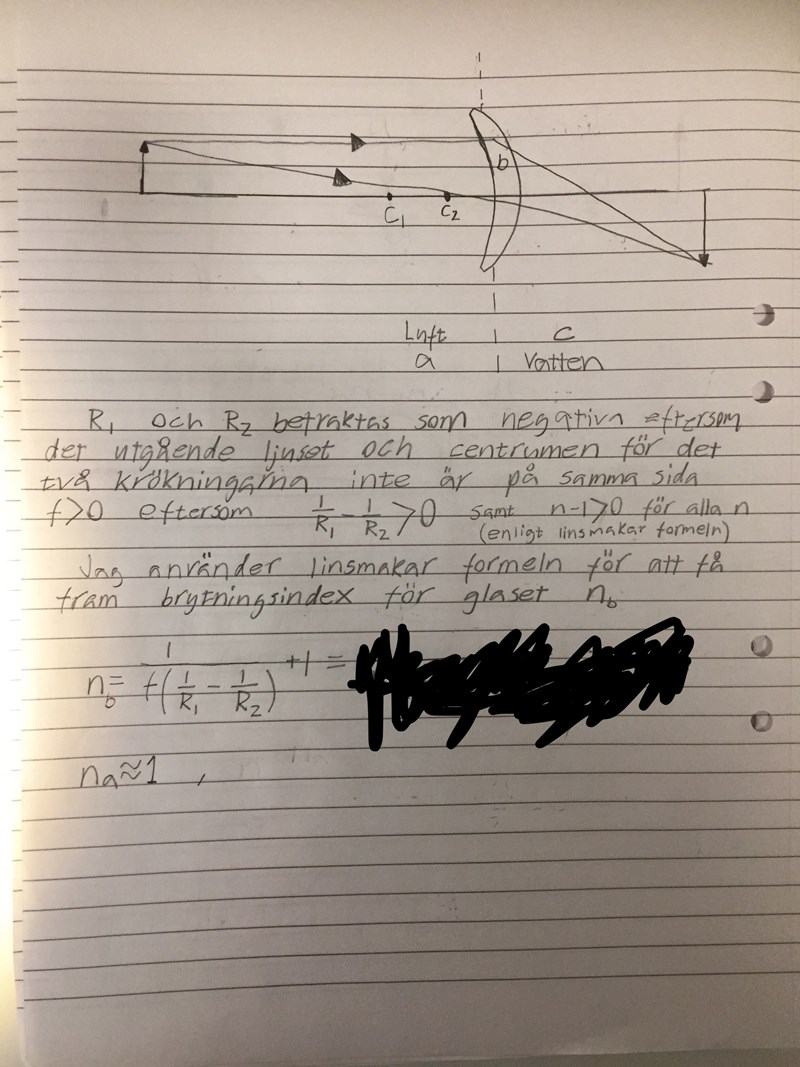 b
C₁ C₂
Luft | C
a | Vatten
R₁ och R₂ betraktas som negativa eftersom
det utgående ljuset och centrumen för det
två krökningarna inte är på samma sida
f>0 eftersom 1/R₁ - 1/R₂ >0 samt n-1>0 för alla n
(enligt linsmakar formeln)
Jag använder linsmakar formeln för att få
fram brytningsindex för glaset n_b
n_b = 1/(f(1/R₁ - 1/R₂)) +1 =
n_a≈1 ,